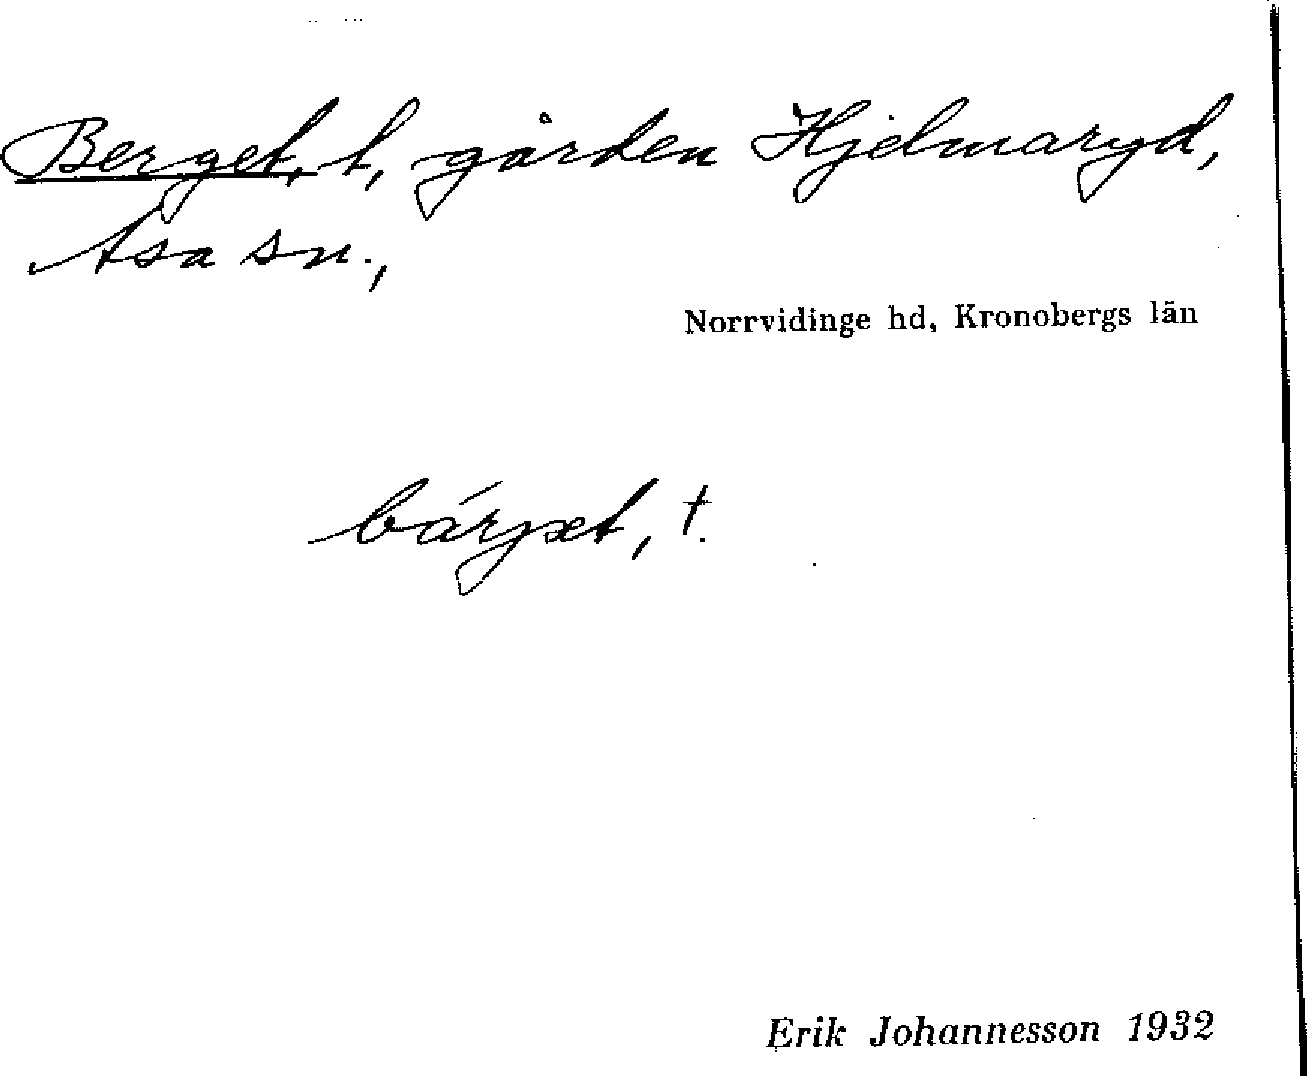 Berget, t, gården Hjelmaryd,
Asa sn.,
Norrvidinge hd, Kronobergs län
bárjæt, †.
Erik Johannesson 1932